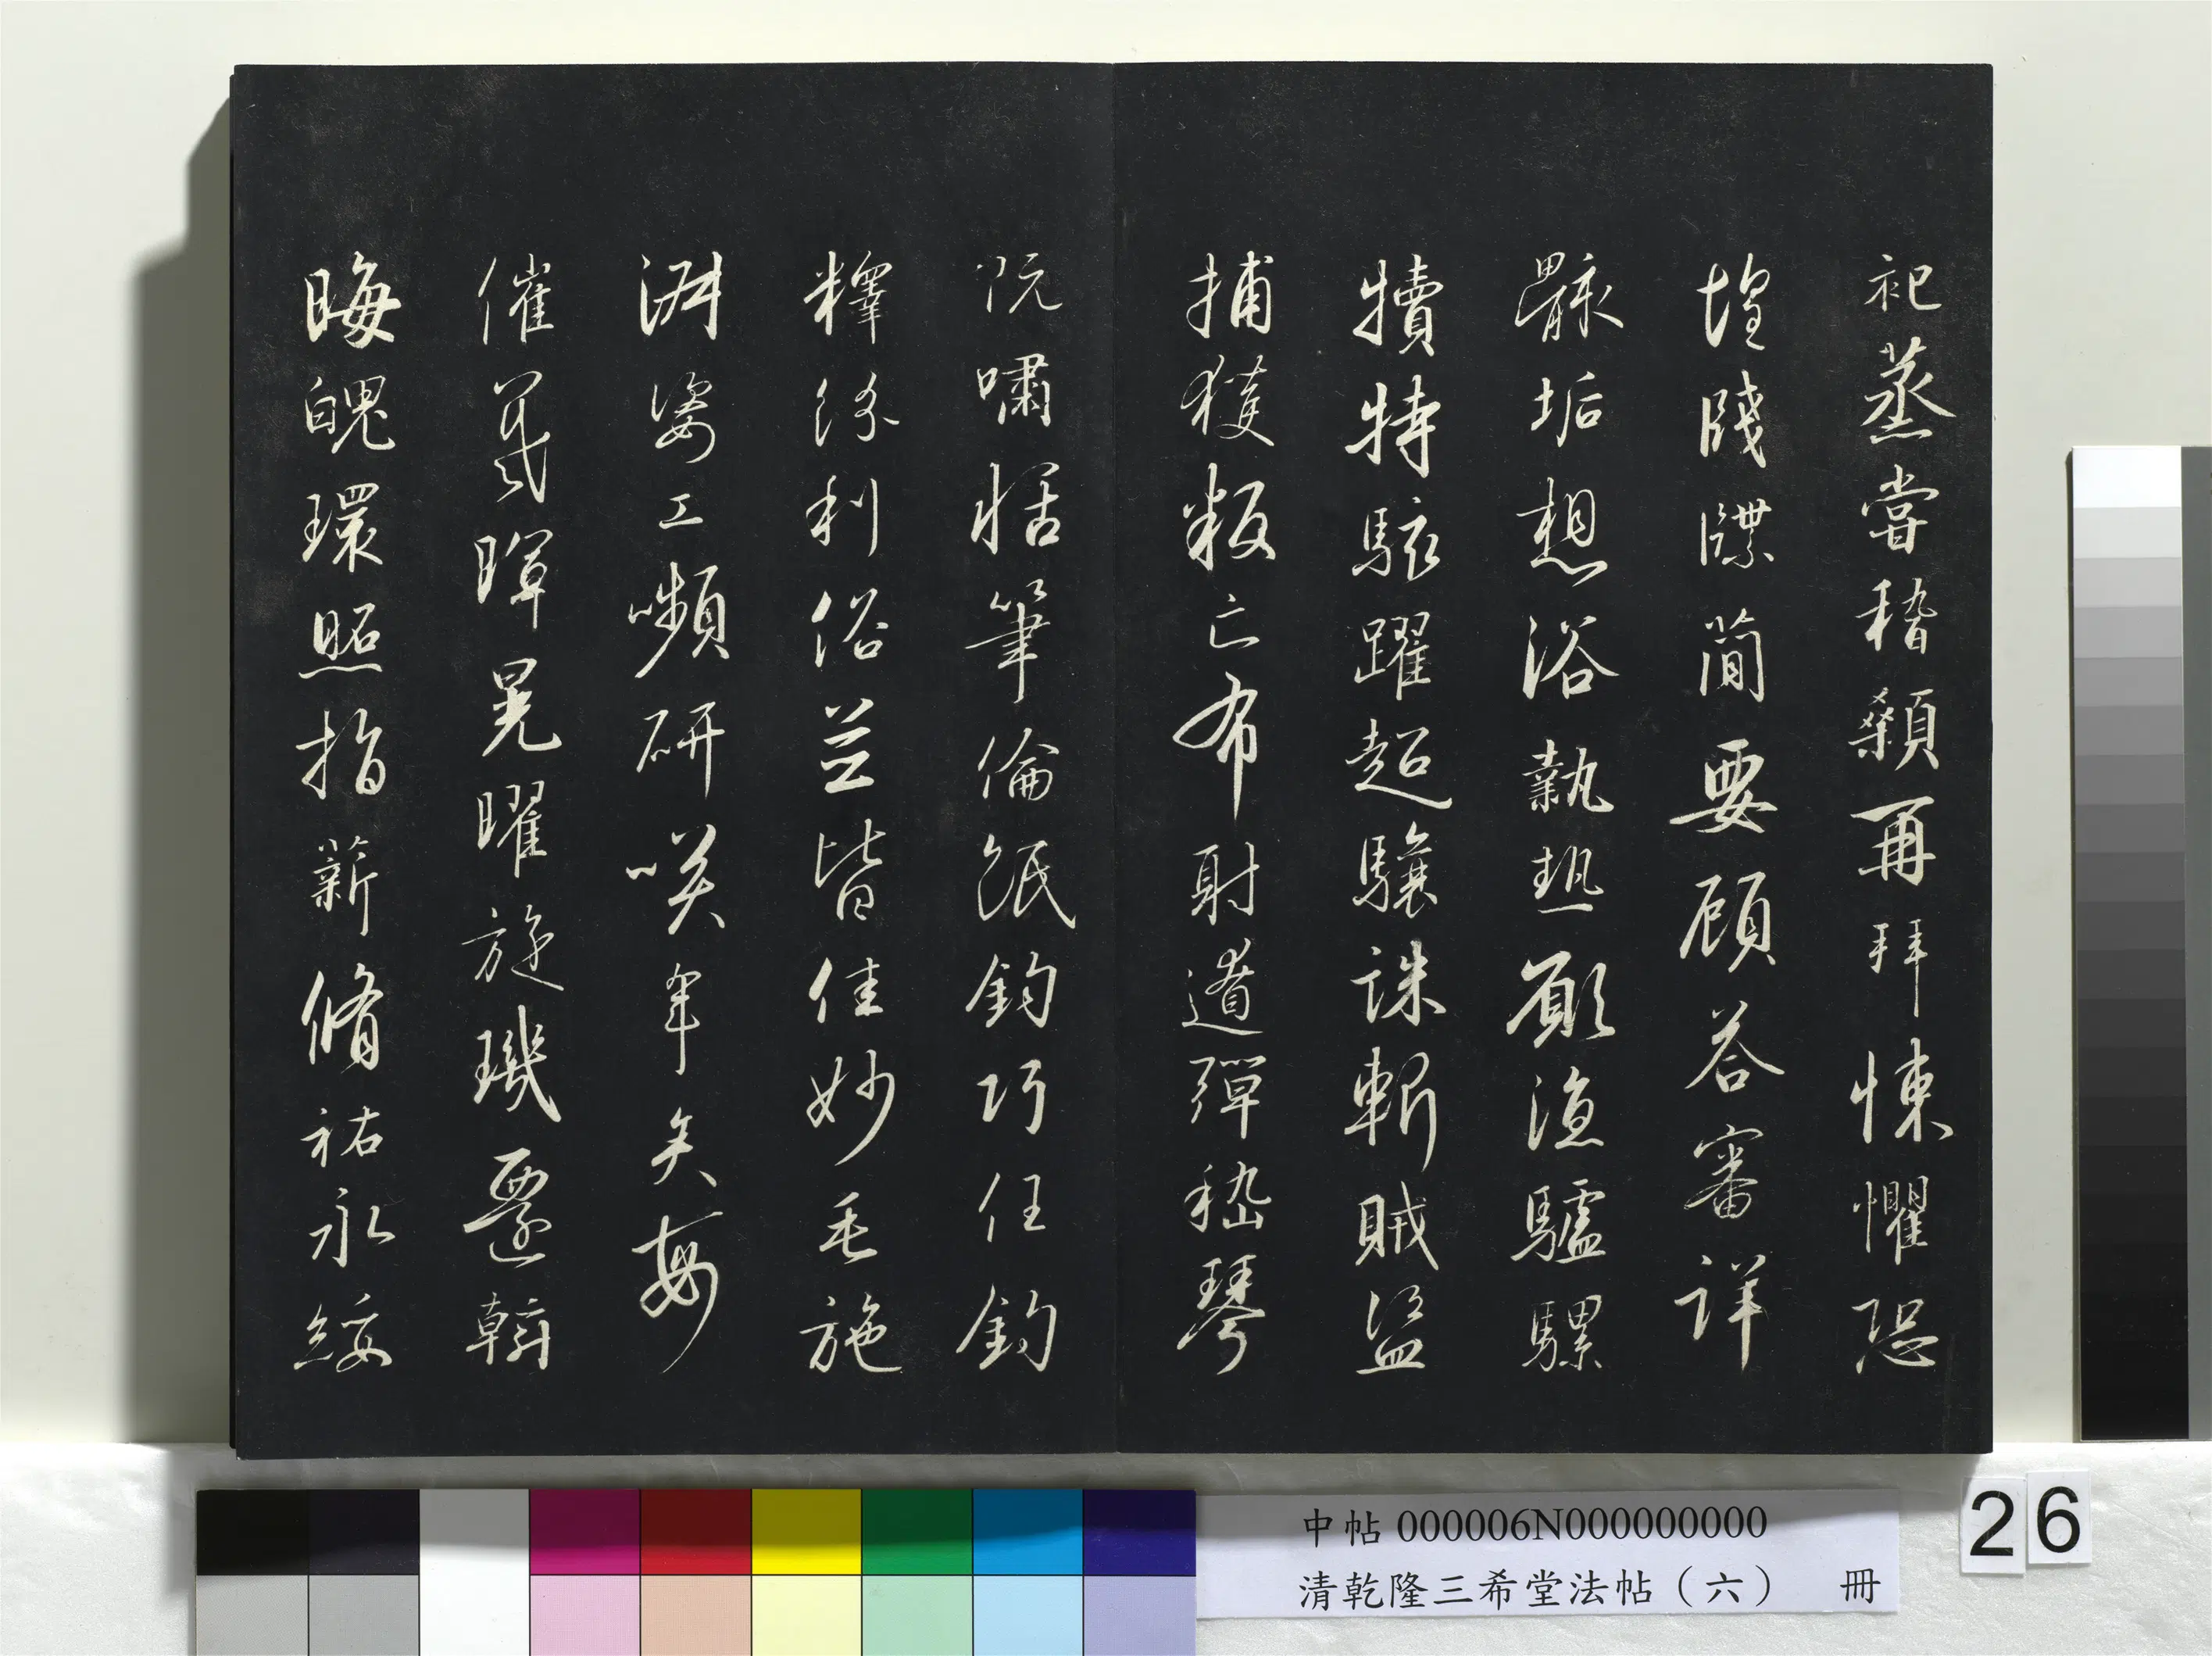 祀蒸嘗稽顙再拜悚懼恐
惶牋牒簡要顧荅審詳
骸垢想浴執熱願涼驢騾
犢特駭躍超驤誅斬賊盜
捕獲叛亡布射遼彈嵇琴
阮嘯恬筆倫紙鈞巧任釣
釋紛利俗並皆佳妙毛施
淑姿工嚬研咲年矢每
催羲暉晃曜旋璣遷斡
晦魄環照指薪脩祐永綏
中帖 000006N000000000
清乾隆三希堂法帖（六） 冊
26